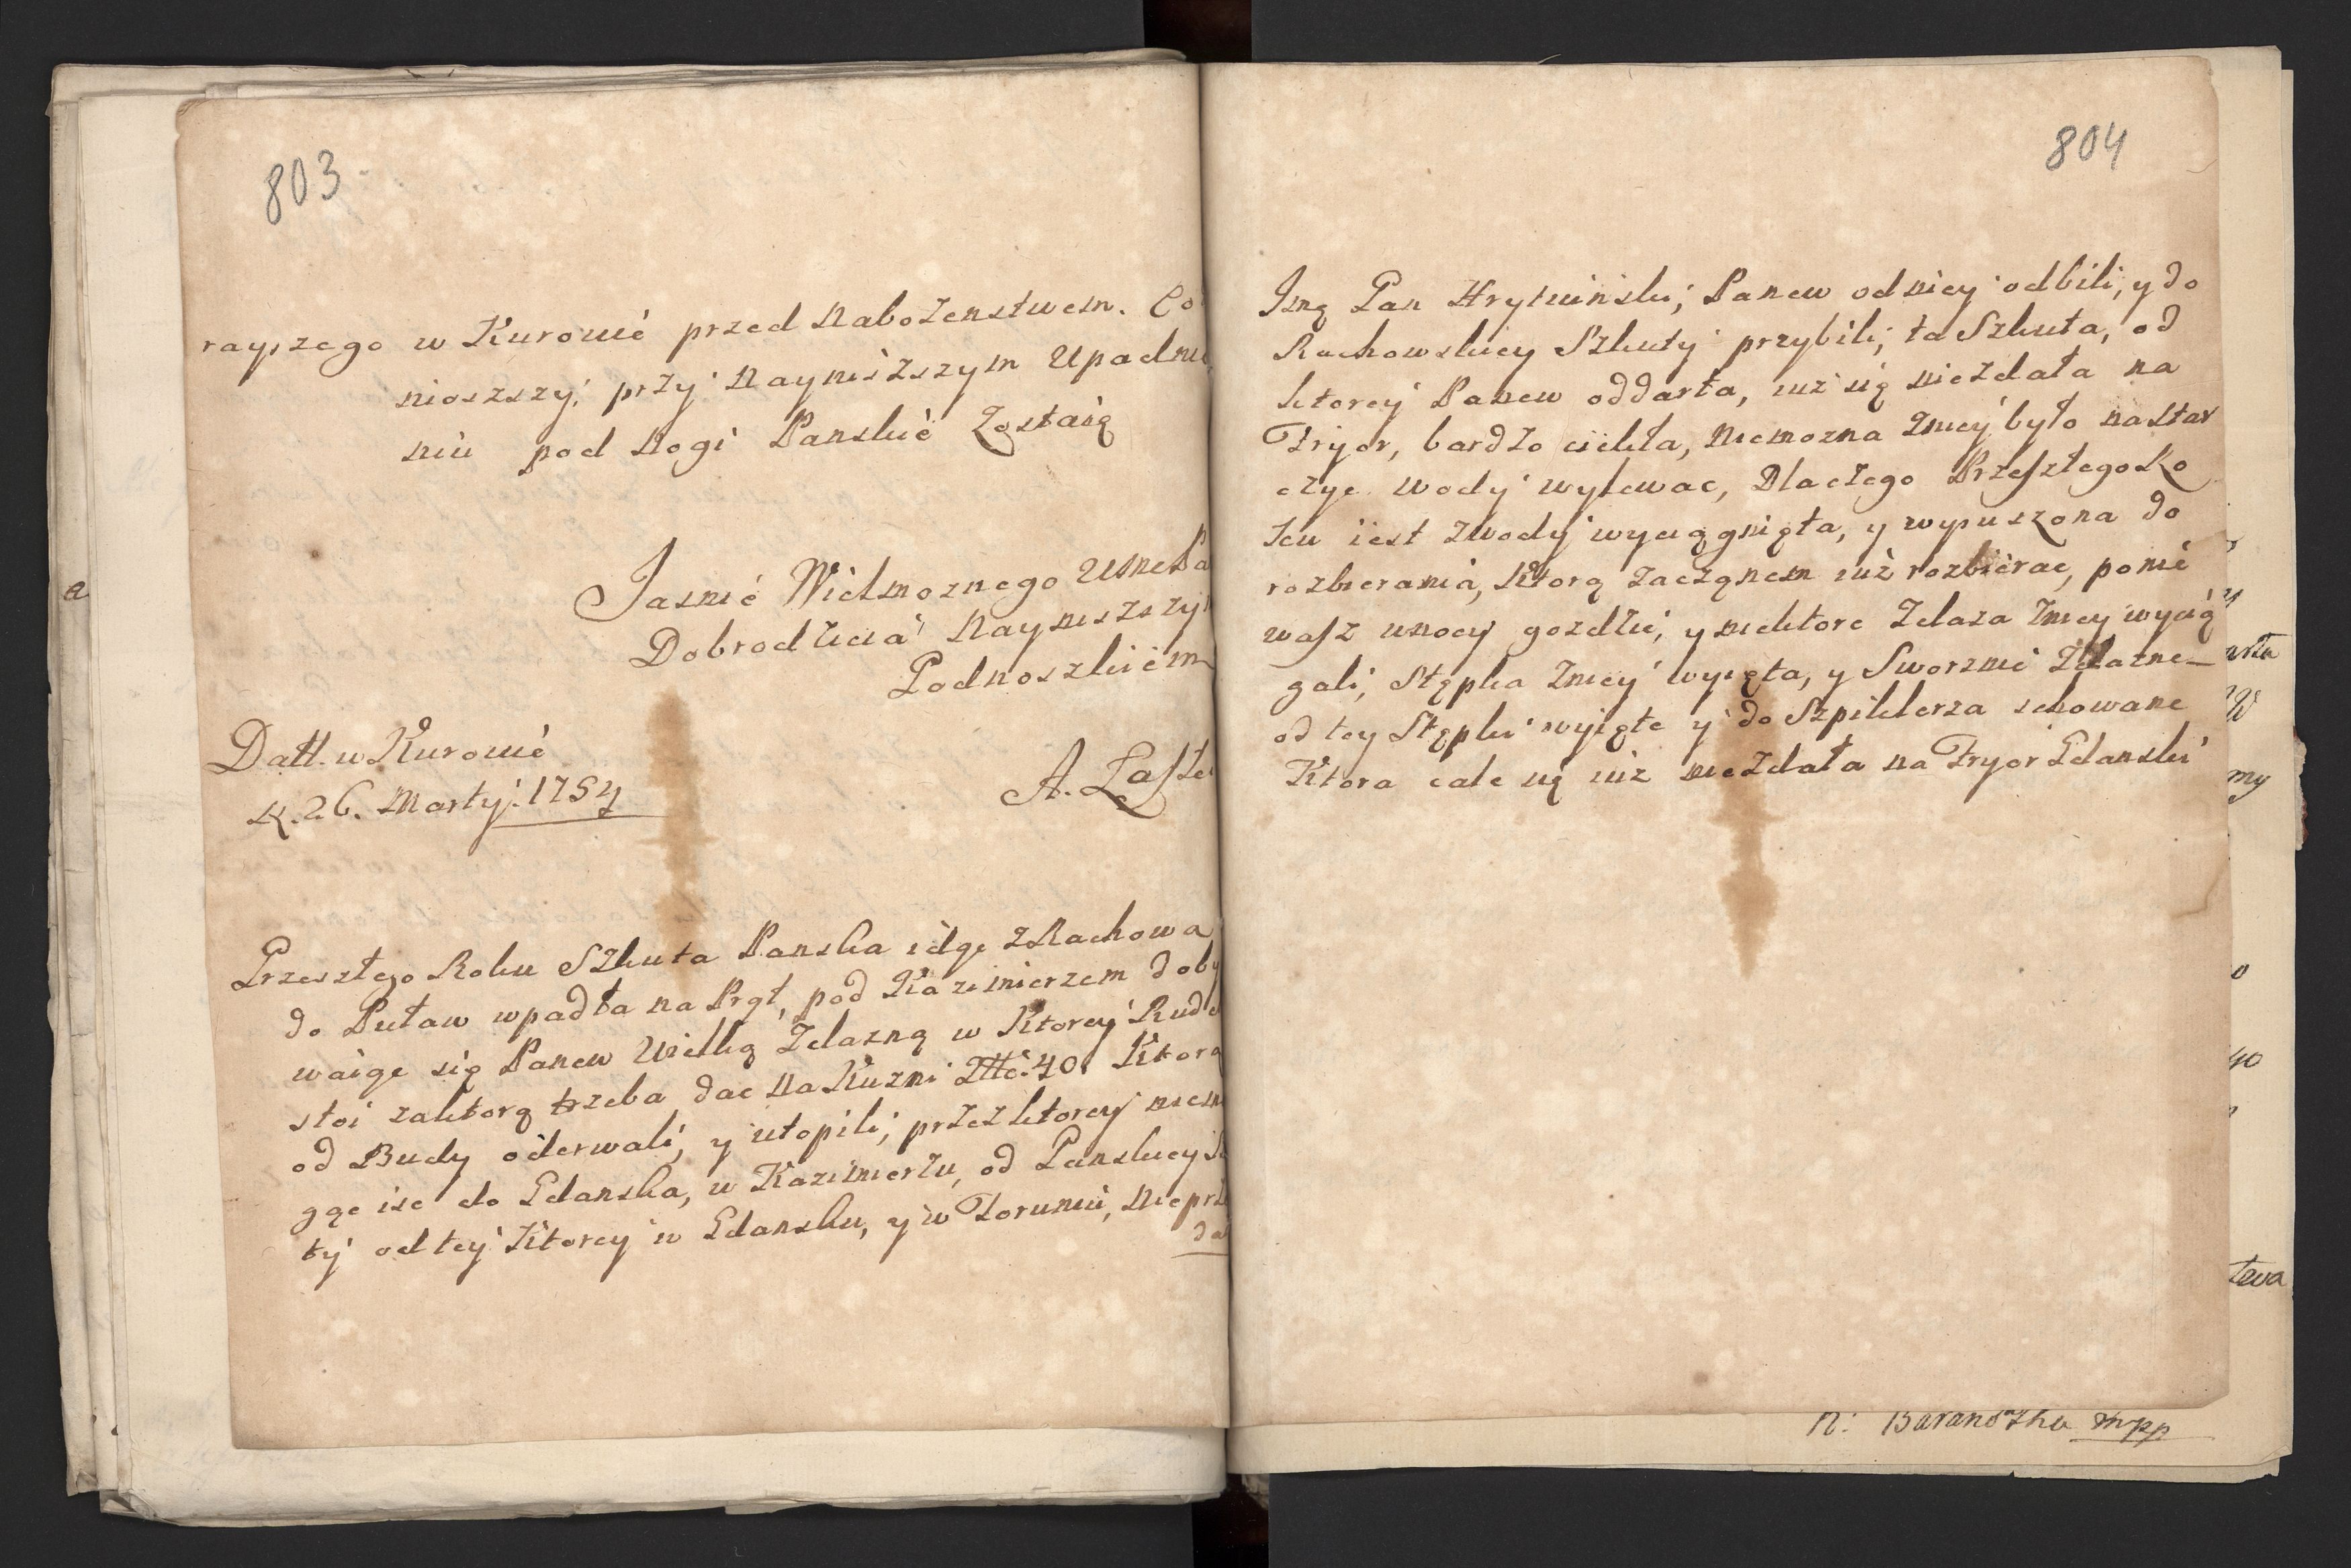 803
rayszego w Kurowie przed Nabożenstwem. Co
nioszszy, przy Nayniższym Upadnie
niu pod Nogi Panskie Zostaię
Jasnie Wielmoznego
Dobrodzieia Nayniszszym
Podnoszkiem
Datt. w Kurowie
26. Martij. 1754
Przeszłego Roku Szkuta Panska idąc z Rachowa
do Puław wpadła na Prąt, pod Kazimierzem doby
waiąc się Panew Wielką Żelazną w Ktorey Rude
stoi zaktorą trzeba dac na Kuzni 40. Ktorą
od Budy oderwali, y utopili, przezktorey niemo
gąc isc do Gdanska, w Kazimierzu, od Panskiey
ty od tey Ktorey w Gdansku, y w Toruniu, Nieprze
da
804
Jmę Pan Hrywinski, Panew odniey odbili, y do
Rachowskiey Szkuty przybili, ta Szkuta, od
ktorey Panew oddarta, iuż się niezdała na
Fryor, bardzo ciekła, Niemozna zniey było nastar
czyc wody wylewac, Dlaczego Przeszłego Ro
ku iest zwody wyciągnięta, y wypuszona do
rozbierania, Ktorą zacząnem iuż rozbierac, ponie
wasz wnocy gozdzie, y niektore Zelaza zniey wycią
gali, Stępka zniey wyięta, y Sworznie Żelazne
od tey Stępki wyięte y do Szpiklerza schowane
Ktora cale się iuz niezdała na Fryor Gdanski
mpp